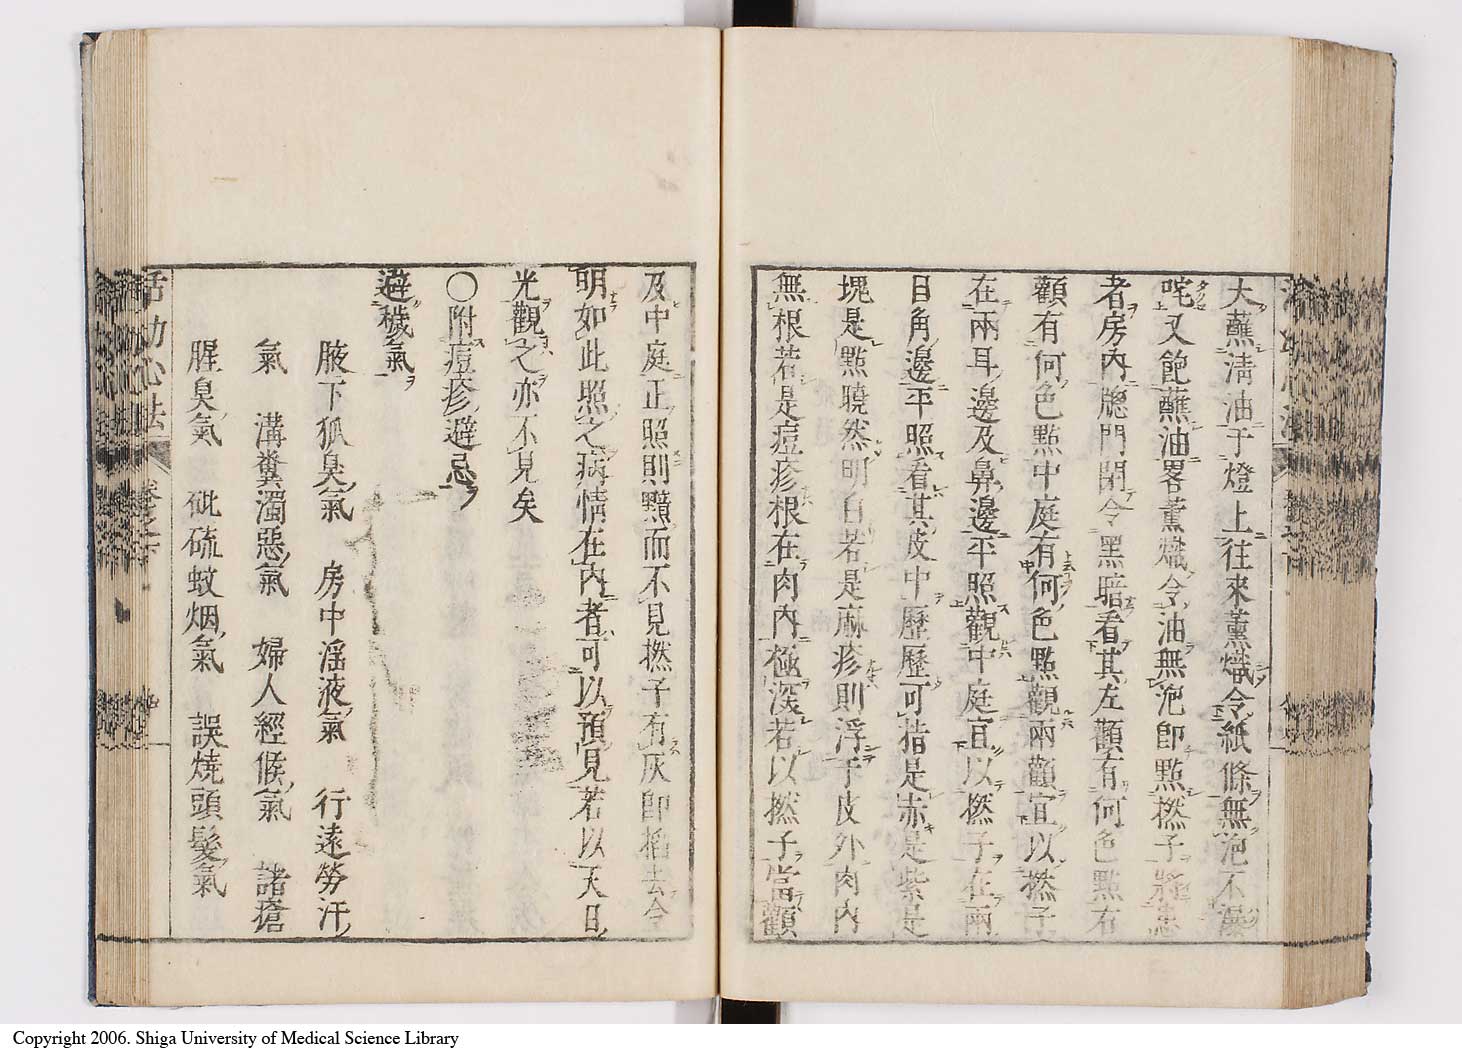 大蘸清油于燈上往來薰熾令紙條無泡不瀑
咤又飽蘸油畧薰熾令油無泡卽點撚子將患
者房內牕門閉令黑暗看其左顴有何色點右
顴有何色點中庭有何色點觀兩顴宜以撚子
在兩耳邊及鼻邊平照觀中庭宜以撚子在兩
目角邊平照看其皮中歷歷可指是赤是紫是
塊是點曉然明白若是麻疹則浮于皮外肉內
無根若是痘疹根在肉內極深若以撚子當顴
及中庭正照則黯而不見撚子有灰卽掐去令
明如此照之病情在內者可以預見若以天日
光觀之亦不見矣
〇附痘疹避忌
避穢氣
腋下狐臭氣 房中淫液氣 行遠勞汗
氣 溝糞濁惡氣 婦人經候氣 諸瘡
腥臭氣 砒硫蚊烟氣 誤燒頭髮氣
活幼心法 卷之下
Copyright 2006. Shiga University of Medical Science Library